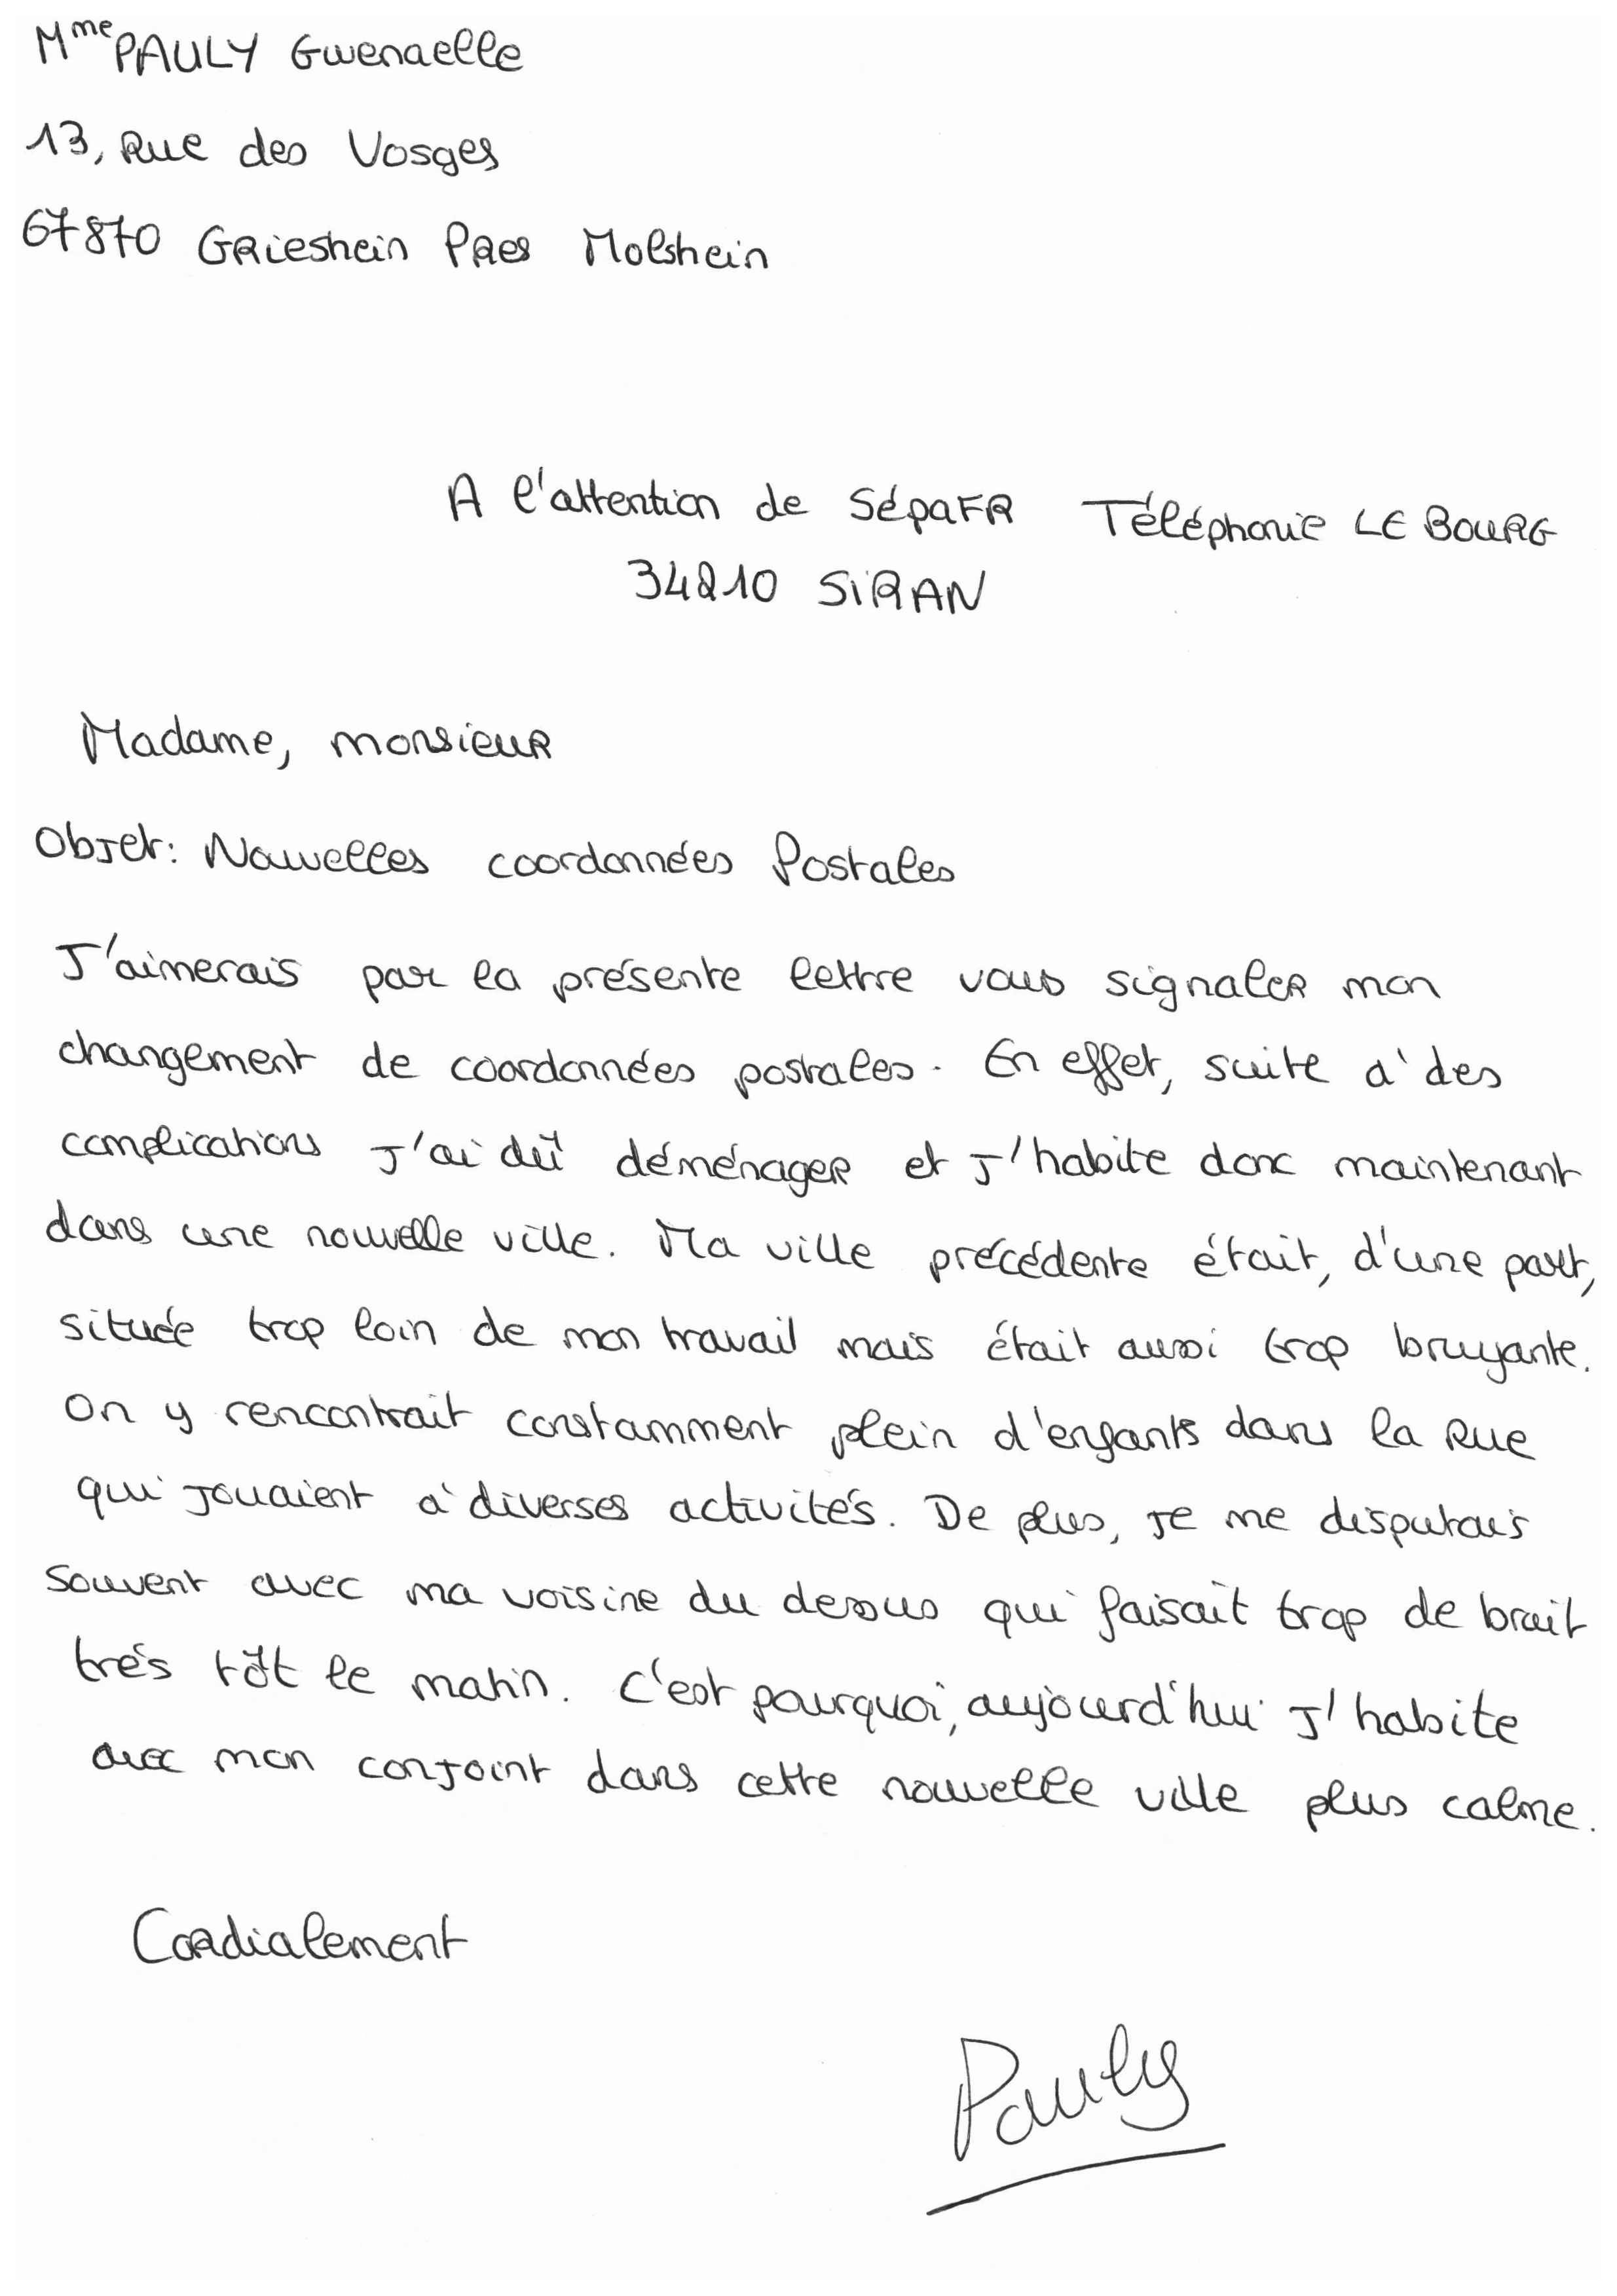 Mme PAULY Gwenaelle
13, Rue des Vosges
67870 Grieshein Pres Molshein
A l'attention de SépaFR Téléphonie LE BOURG
34210 SIRAN
Madame, monsieur
Objet: Nouvelles coordonnées Postales
J'aimerais par la présente lettre vous signaler mon
changement de coordonnées postales. En effet, suite à des
complications j'ai dû déménager et j'habite donc maintenant
dans une nouvelle ville. Ma ville précédente était, d'une part,
située trop loin de mon travail mais était aussi trop bruyante.
On y rencontrait constamment plein d'enfants dans la rue
qui jouaient à diverses activités. De plus, je me disputais
souvent avec ma voisine du dessus qui faisait trop de bruit
très tôt le matin. C'est pourquoi, aujourd'hui j'habite
avec mon conjoint dans cette nouvelle ville plus calme.
Cordialement
Pauly